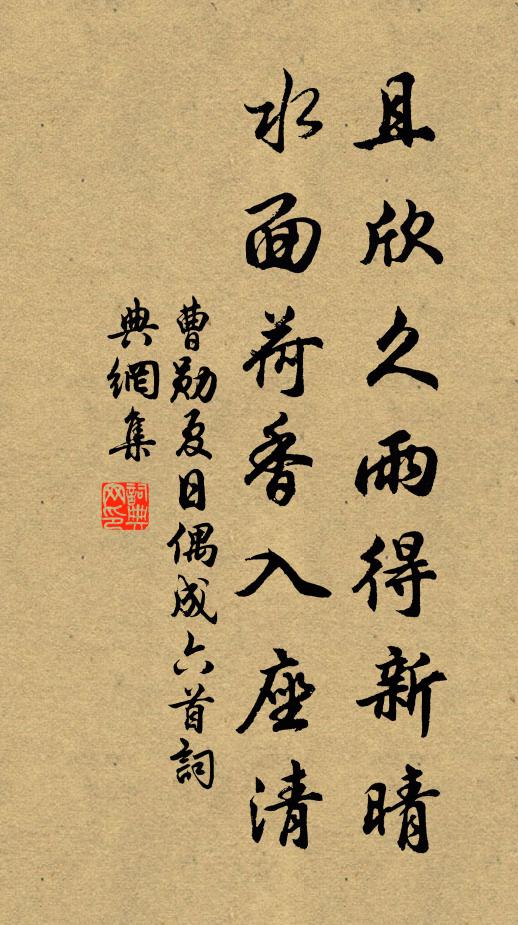 且欣久雨得新晴
水面荷香入座清
曹勛夏日偶成六首詞
典網集
詞典网印